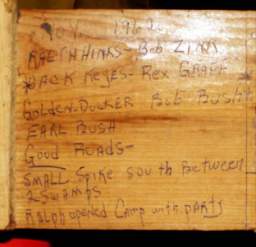 Nov. 1962
Hinks - Bob Zink
Jack Keyes - Rex
Golden - Ducker Bob Bush
Earl Bush
Good Roads -
Small Spike south between
2 swamps
Ralph opened Camp with Darts